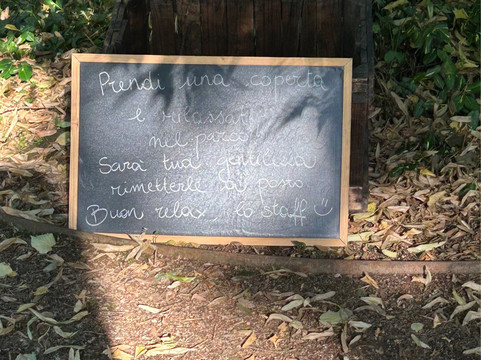 Prendi una coperta
e rilassati
nel parco
Sarà tua gentilezza
rimetterle a posto
Buon relax lo staff